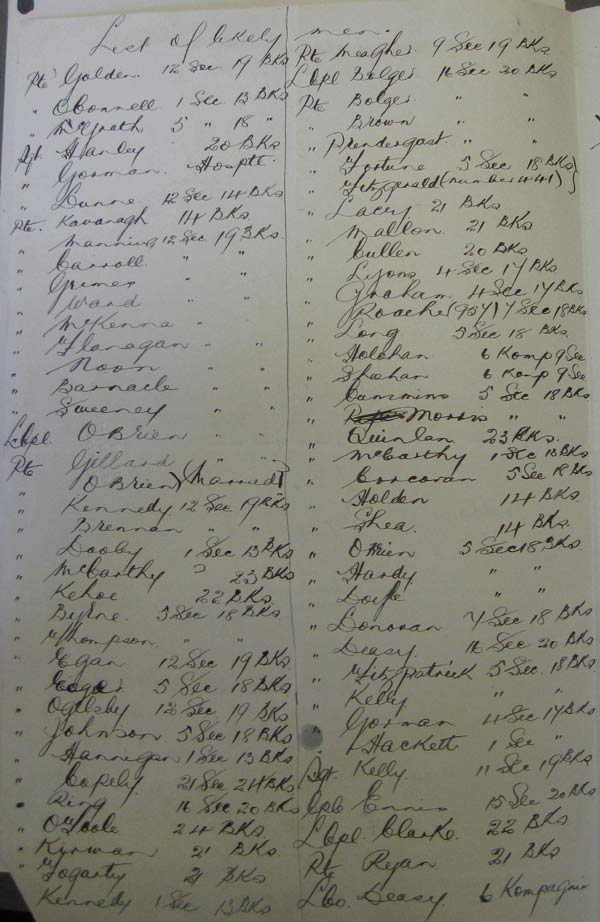 List of likely men.
Pte Golden. 12 Sec 19 BKs
" OConnell 1 Sec 13 BKs
" McGrath 5 " 18 "
Sgt. Hanley 20 BKs
" Gorman Hosptl.
" Dunne. 12 Sec 14 BKs
Pte. Kavanagh 14 BKs
" Manning 12 Sec 19 BKs.
" Carroll " "
" Gremer " "
" Ward " "
" McKenna " "
" Flanagan " "
" Noon " "
" Barnacle " "
" Sweeney " "
Lcpl OBrien " "
Pte Gillard
" OBrien (Married)
" Kennedy 12 Sec 19 BKs
" Brennan " "
" Dooley 1 Sec 13 BKs
" McCarthy ? 23 BKs
" Kehoe 22 BKs
" Byrne. 5 Sec 18 BKs
" Thompson. " "
" Egan 12 Sec 19 BKs
" 5 Sec 18 BKs
" Ogilsby 12 Sec 19 BKs
" Johnson 5 Sec 18 BKs
" Hannigan 1 Sec 13 BKs
" Copely 21 Sec 24 BKs
" Ring 16 Sec 20 BKs
" OToole 24 BKs
" Kirwan 21 BKs
" Fogarty 21 BKs
Kennedy 1 Sec 13 BKs
Pte Meagher 9 Sec 19 BKs
Lcpl Bolger 16 Sec 20 BKs
Pte Bolger " "
" Brown " "
" Prendergast " "
" Fortune 5 Sec 18 BKs
" Fitzgerald (number 441)
" Lacey 21 BKs
" Mallon 21 BKs
" Cullen 20 BKs
" Lyons 4 Sec 17 BKs
" Graham 4 Sec 17 BKs
" Roache (957) 7 Sec 18 BKs
" Long 5 Sec 18 BKs.
" Holohan 6 Komp 9 Sec
" Shehan 6 Komp 9 Sec
" Cummins 5 Sec 18 BKs
" Morris " "
" Quinlan 23 BKs.
" McCarthy 1 Sec 13 BKs
" Corcoran 5 Sec 18 BKs
" Holden 14 BKs.
" Shea. 14 BKs.
" OBrien 5 Sec 18 BKs.
" Hardy " "
" Doyle " "
" Donovan 7 Sec 18 BKs
" Deasy. 16 Sec 20 BKs.
" Fitz Patrick 5 Sec. 18 BKs.
" Kelly " "
" Gorman 4 Sec 17 BKs
" Hackett 1 Sec "
Sgt. Kelly. 11 Sec 19 BKs
Cpl Ennis 15 Sec 20 BKs
Lcpl. Clarke. 22 BKs
Pte Ryan. 21 BKs
Deasy. 6 Kompagnie